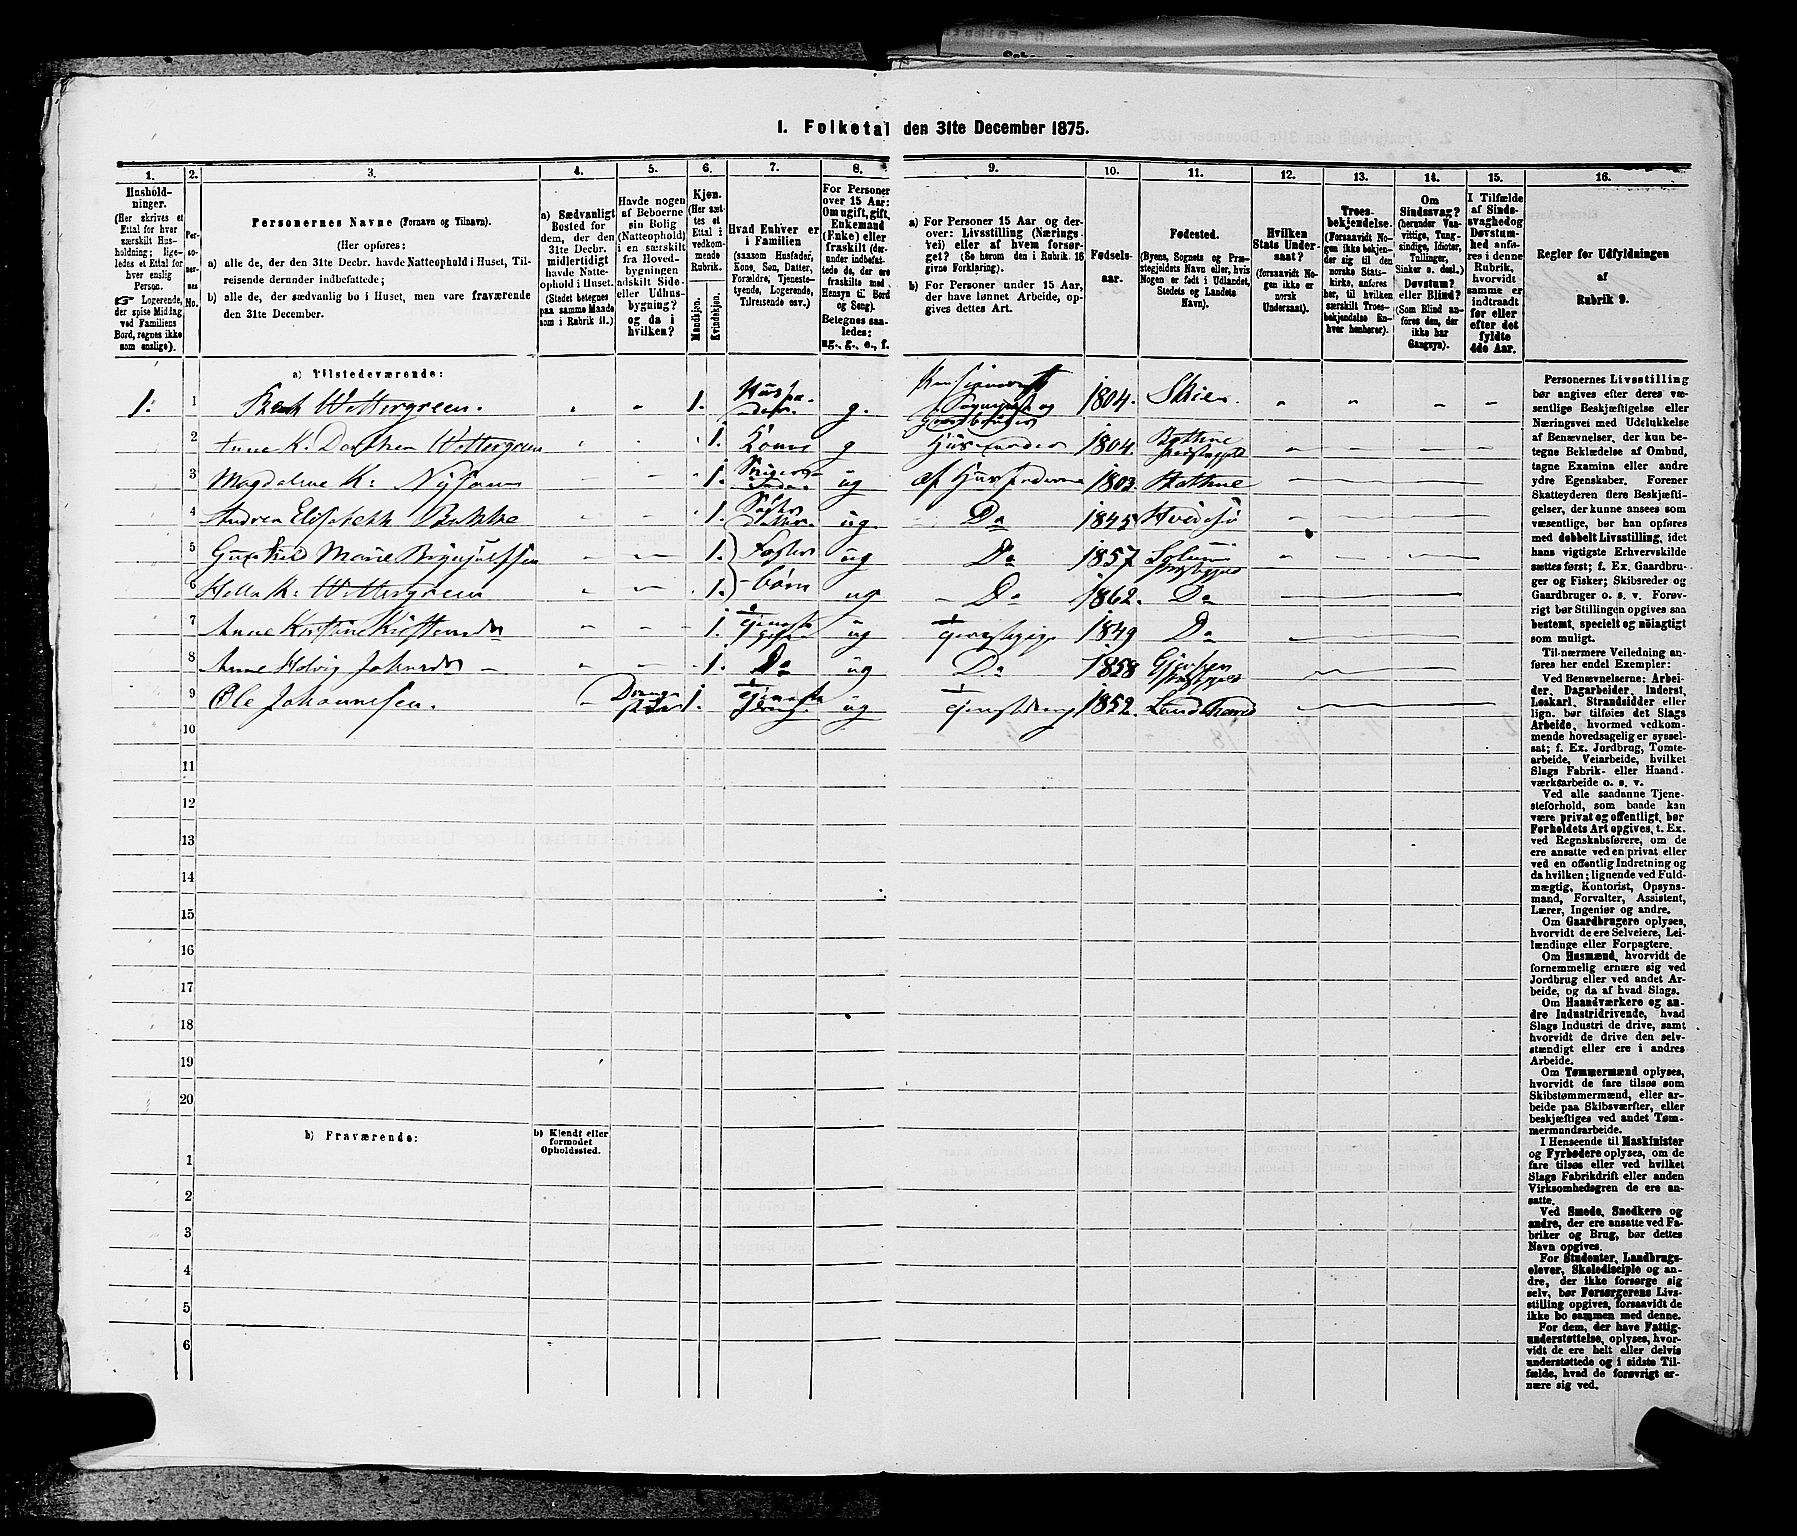 1. Folketal den 31te December 1875.
1. 2. 3. 4. 5. 6. 7. 8. 9. 10. 11. 12. 13. 14. 15. 16.
Hushold-
ninger.
(Her skrives et
Ettal for hver
særskilt Hus-
holdning; lige-
ledes et Ettal for
hver enslig
Person.
Logerende,
der spise Middag
ved Familiens
Bord, regnes ikke
som enslige).
Per-
soner-
nes
No.
Personernes Navne (Fornavn og Tilnavn).
(Her opføres:
a) alle de, der den 31te Decbr. havde Natteophold i Huset, Til-
reisende derunder indbefattede;
b) alle de, der sædvanlig bo i Huset, men vare fraværende
den 31te December.
a) Sædvanligt
Bosted for
dem, der den
31te Decbr.
midlertidigt
havde Natte-
ophold i Huset.
(Stedet betegnes
paa samme Maade
som i Rubrik 11.)
Havde nogen
af Beboerne
sin Bolig
(Natteophold)
i en særskilt
fra Hoved-
bygningen
adskilt Side-
eller Udhus-
bygning?
og da i
hvilken?
Kjøn.
(Her sæt-
tes et
Ettal i
vedkom-
mende
Rubrik.
Mandkjøn.
Kvindekjøn.
Hvad Enhver er
i Familien
(saasom Husfader,
Kone, Søn, Datter,
Forældre, Tjeneste-
tyende, Logerende,
Tilreisende osv.)
For Personer
over 15 Aar:
Om ugift, gift,
Enkemand
(Enke) eller
fraskilt (der-
under indbefat-
tede de, der ere
fraskilte med
Hensyn til Bord
og Seng).
Betegnes saa-
ledes:
ug., g., e., f.
a) For Personer 15 Aar og der-
over: Livsstilling (Nærings-
vei) eller af hvem forsør-
get? (Se herom den i Rubrik 16
givne Forklaring).
b) For Personer under 15 Aar,
der have lønnet Arbeide, op-
gives dettes Art.
Fødsels-
aar.
Fødested.
(Byens, Sognets og Præ-
stegjeldets Navn eller, hvis
Nogen er født i Udlandet,
Stedets og Landets
Navn).
Hvilken
Stats Under-
saat?
(forsaavidt No-
gen ikke er
norsk
Undersaat).
Troes-
bekjendelse.
(Forsaavidt No-
gen ikke bekjen-
der sig til den
norske Stats-
kirke, anføres
her, til hvilken
særskilt Troes-
bekjendelse En-
hver henhører).
Om
Sindssvag?
(herunder Van-
vittige, Tung-
sindige, Idioter,
Tullinger,
Sinker o. desl.)
Døvstum?
eller Blind?
(Som Blind an-
føres den, der
ikke har
Gangsyn).
I Tilfælde
af Sinds-
svaghed og
Døvstum-
hed anfø-
res i denne
Rubrik,
hvorvidt
samme er
indtraadt
før eller
efter det
fyldte
4de Aar.
Regler for Udfyldningen
af
Rubrik 9.
a) Tilstedeværende:
1. 1 Wettergreen. 1. g. 1804. Skien.
2 Anne K. Dorthea Wettergreen 1. Kone g 1804.
3 Magdalene K. 1. ug af Husfaderen 1803.
4 Andrea Elisabeth Bakke 1. ug. Do 1845 Hvidesø
5 Marie Brynjulfsen 1. Foster- ug Do 1857. Solum
6 Wettergreen 1. børn ug Do 1862. Do
7 Anne 1. ug 1849 Do
8 Anne 1. Do ug Do 1858 Gjerpen
9 Ole Johannesen. 1. ug 1852.
10
11
12
13
14
15
16
17
18
19
20
b) Fraværende:
b) Kjendt eller
formodet
Opholdssted.
1
2
3
4
5
6
Personernes Livsstilling
bør angives efter deres væ-
sentlige Beskjæftigelse eller
Næringsvei med Udelukkelse
af Benævnelser, der kun be-
tegne Beklædelse af Ombud,
tagne Examina eller andre
ydre Egenskaber. Forener
Skatteyderen flere Beskjæfti-
gelser, der kunne ansees som
væsentlige, bør han opføres
med dobbelt Livsstilling, idet
hans vigtigste Erhvervskilde
sættes først; f. Ex. Gaardbru-
ger og Fisker; Skibsreder og
Gaardbruger o. s. v. Forøv-
rigt bør Stillingen opgives saa
bestemt, specielt og nøiagtigt
som muligt.
Til nærmere Veiledning an-
føres her endel Exempler:
Ved Benævnelserne: Arbei-
der, Dagarbeider, Inderst,
Løskarl, Strandsidder eller
lign. bør tilføies det Slags
Arbeide, hvormed vedkom-
mende hovedsagelig er syssel-
sat; f. Ex. Jordbrug, Tomte-
arbeide, Veiarbeide, hvilket
Slags Fabrik- eller Haand-
værksarbeide o. s. v.
Ved alle saadanne Tjene-
steforhold, som baade kan
være privat og offentligt, bør
Forholdets Art opgives, t. Ex.
ved Regnskabsførere, om de
ere ansatte ved en privat eller
ved en offentlig Indretning og
da hvilken; lignende ved Fuld-
mægtig, Kontorist, Opsyns-
mand, Forvalter, Assistent,
Lærer, Ingeniør og andre.
Om Gaardbrugere oplyses,
hvorvidt de ere Selveiere, Lei-
lændinge eller Forpagtere.
Om Husmænd, hvorvidt de
fornemmelig ernære sig ved
Jordbrug eller ved andet Ar-
beide, og da af hvad Slags.
Om Haandværkere og an-
dre Industridrivende, hvad
Slags Industri de drive, samt
hvorvidt de drive den selv-
stændigt eller ere i andres
Arbeide.
Om Tømmermænd oplyses,
hvorvidt de fare tilsøs som
Skibstømmermænd, eller ar-
beide paa Skibsværfter, eller
beskjæftiges ved andet Tøm-
mermandsarbeide.
I Henseende til Maskinister
og Fyrbødere oplyses, om de
fare tilsøs eller ved hvilket
Slags Fabrikdrift eller anden
Virksomhedsgren de ere an-
satte.
Ved Smede, Snedkere og
andre, der ere ansatte ved Fa-
briker og Brug, bør dettes
Navn opgives.
For Studenter, Landbrugs-
elever, Skoledisciple og an-
dre, der ikke forsørge sig
selv, bør Forsørgerens Livs-
stilling opgives, forsaavidt de
ikke bo sammen med denne.
For dem, der have Fattig-
understøttelse, oplyses, hvor-
vidt de ere helt eller delvis
understøttede og i sidste Til-
fælde, hvad de forøvrigt er-
nære sig ved.